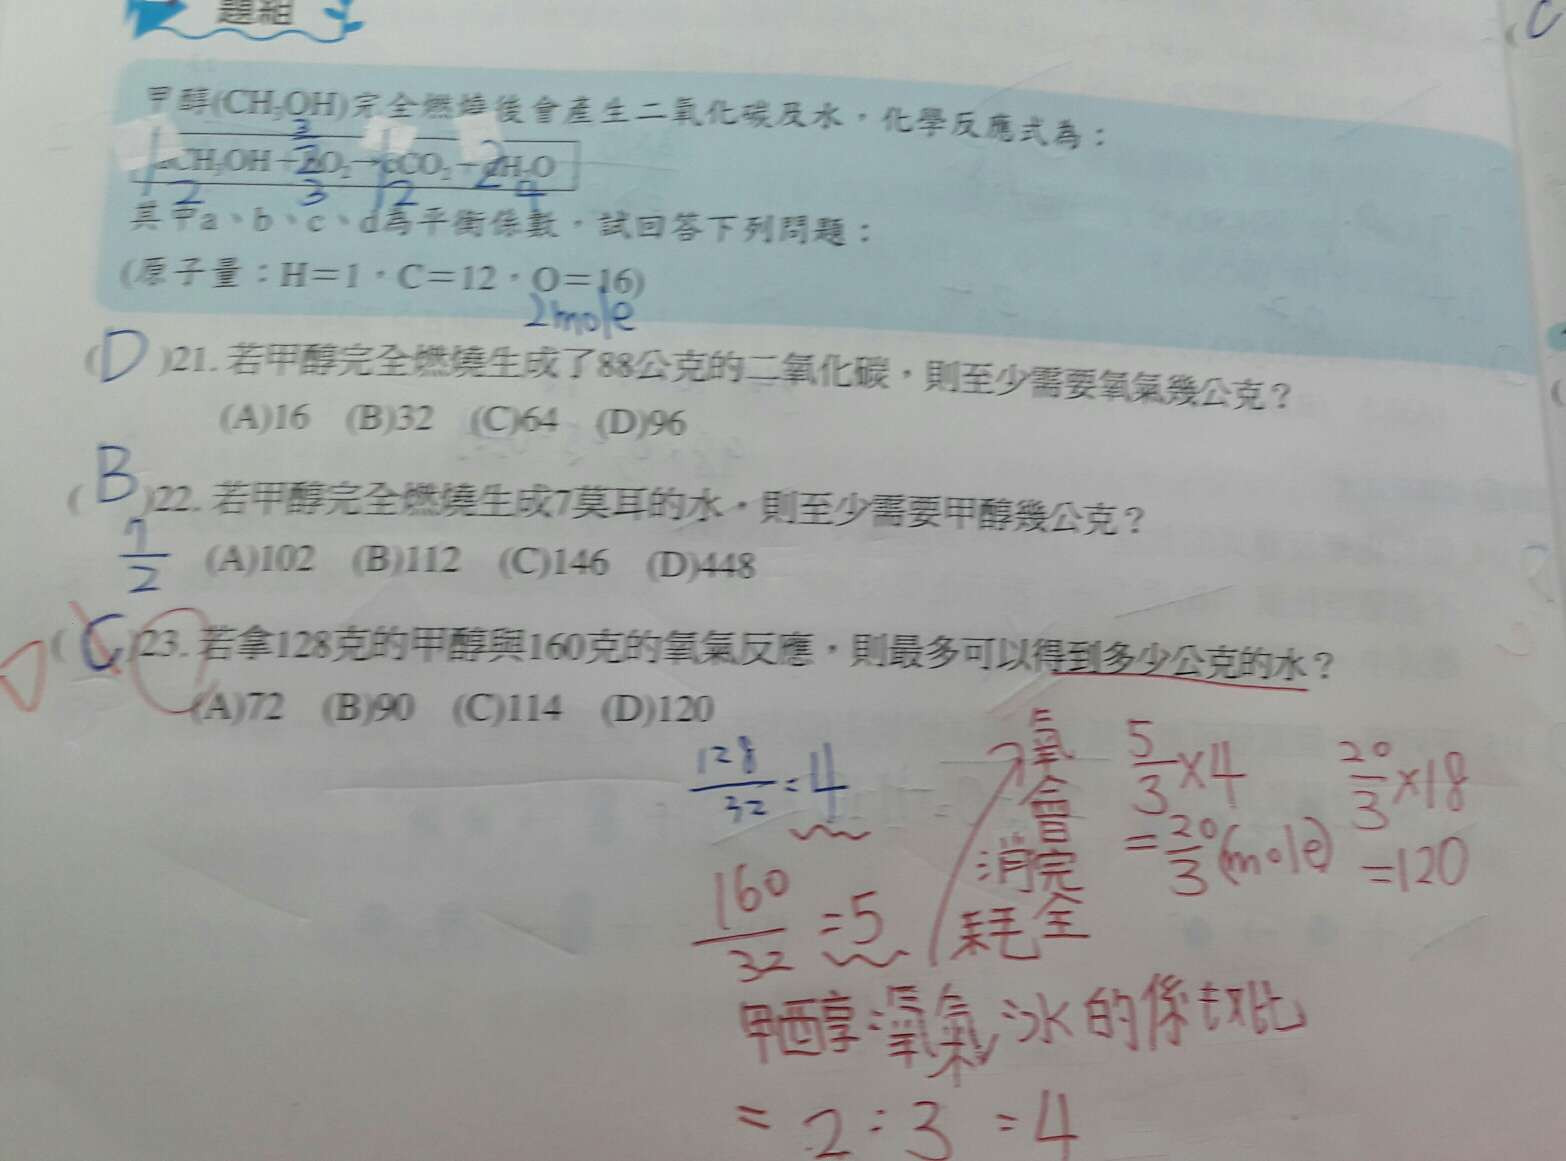 題組
甲醇(CH₃OH)完全燃燒後會產生二氧化碳及水，化學反應式為：
3
CH₃OH＋ O₂→ CO₂＋2H₂O
2 3 2 4
其中a、b、c、d為平衡係數，試回答下列問題：
(原子量：H＝1，C＝12，O＝16)
2mole
(D)21. 若甲醇完全燃燒生成了88公克的二氧化碳，則至少需要氧氣幾公克？
(A)16 (B)32 (C)64 (D)96
(B)22. 若甲醇完全燃燒生成7莫耳的水，則至少需要甲醇幾公克？
7/2
(A)102 (B)112 (C)146 (D)448
(C)23. 若拿128克的甲醇與160克的氧氣反應，則最多可以得到多少公克的水？
(A)72 (B)90 (C)114 (D)120
128/32=4
160/32=5
氧會消耗完全
5/3×4
=20/3(mole)
20/3×18
=120
甲醇:氧氣:水的係數比
=2:3=4